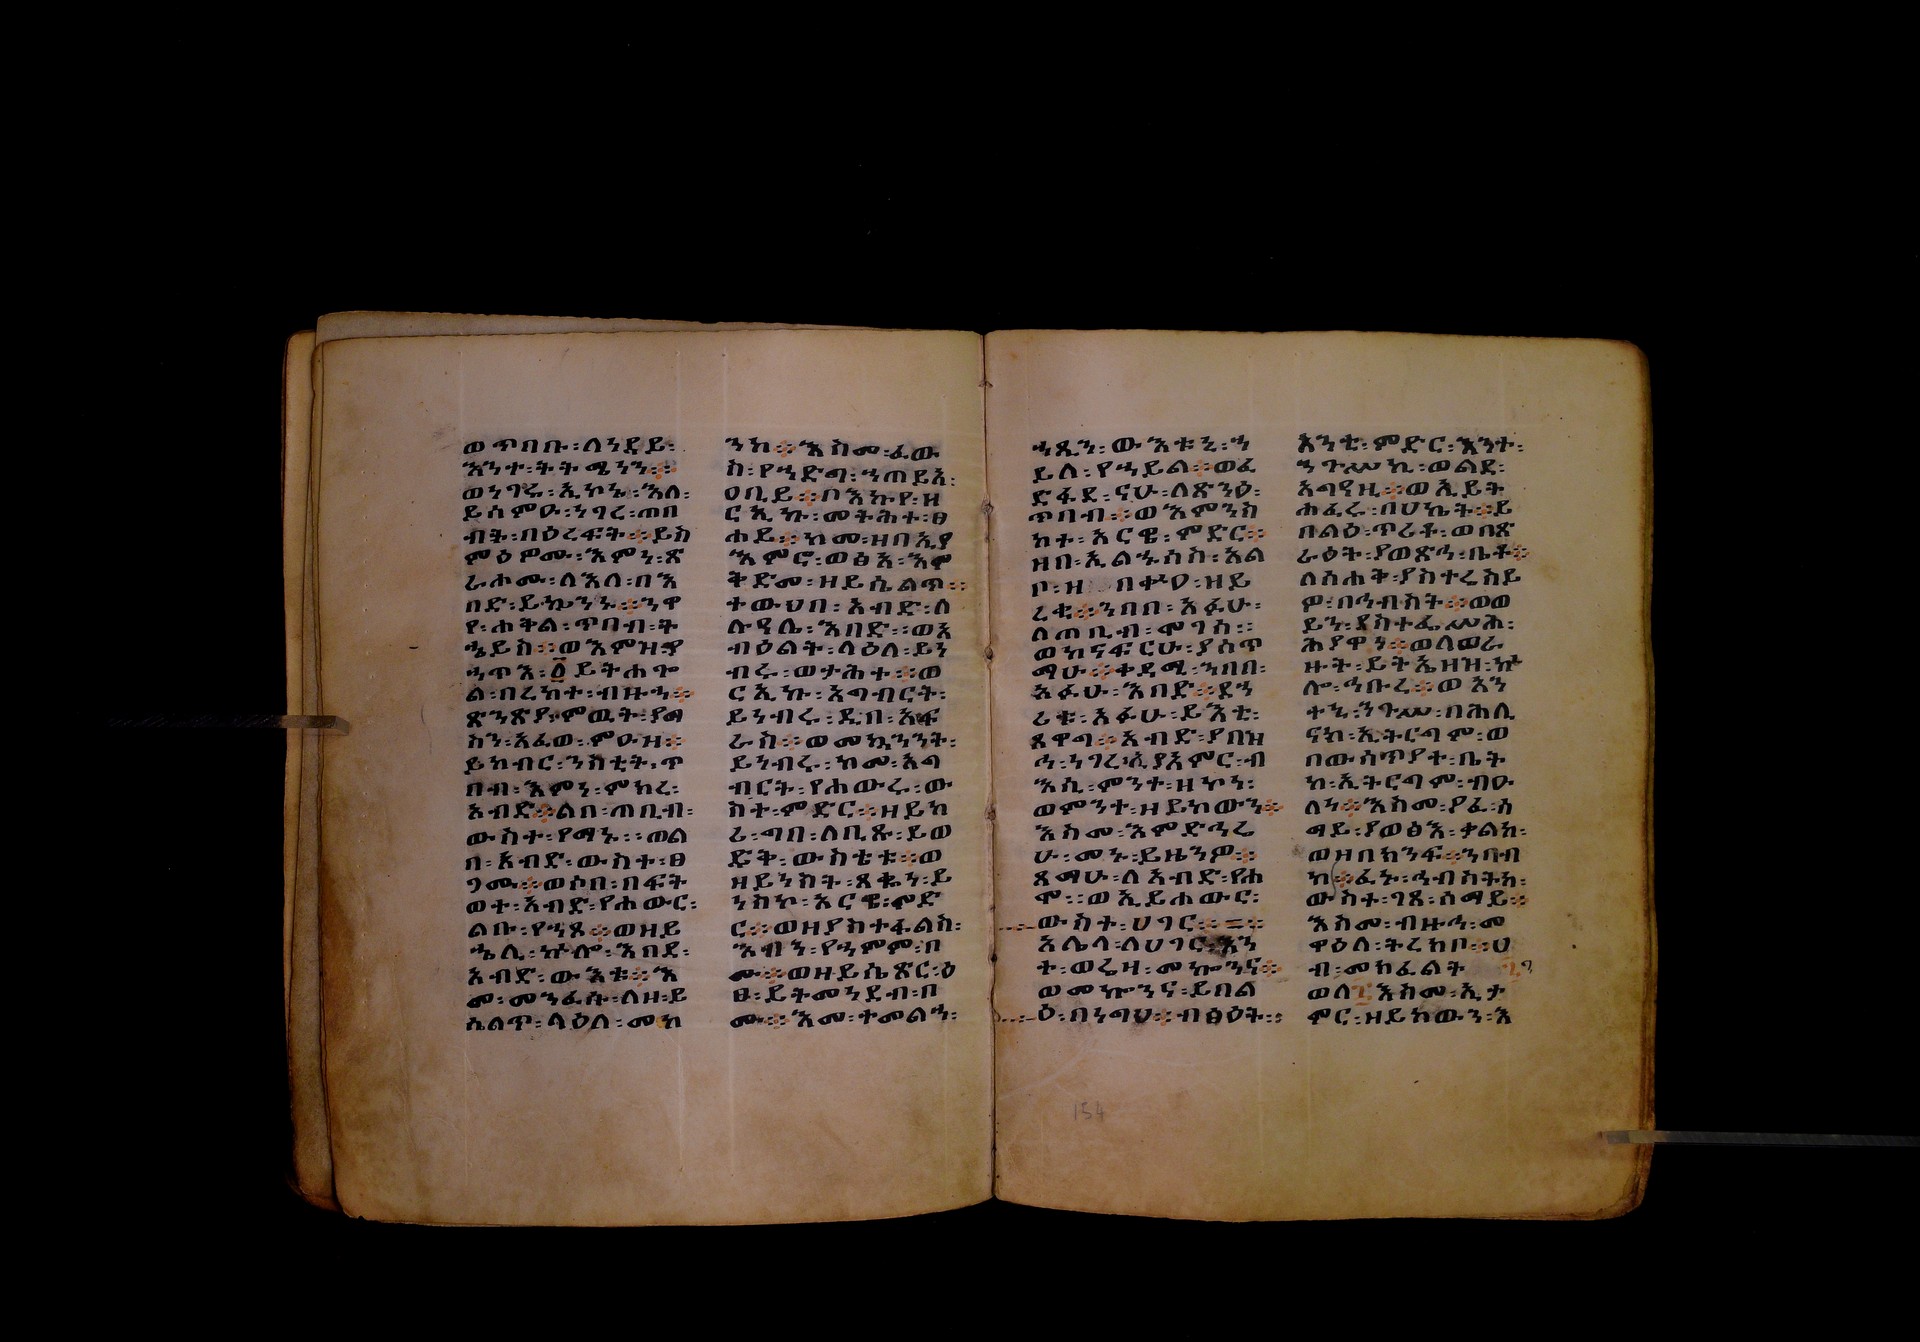 ወጥበቡ፡ለነዳይ፡
እንተ፡ትትሜንን፨
ወነገሩ፡ኢኮኑ፡እለ፡
ይሰምዑ፡ነገረ፡ጠበ
ብት፡በዕረፍት፨ይከ
ምዕዎሙ፡እምነ፡ጽ
ራሐሙ፡ለእለ፡በእ
በድ፡ይኴንኑ፨ንዋ
የ፡ሐቅል፡ጥበብ፡ት
ኄይስ፨ወእምዝ፡ዘየ
ኃጥእ፡፩ይትሐጐ
ል፡በረከተ፡ብዙኃ፨
ጽንጽያ፡ምዉት፡ያማ
ስን፡አፈወ፡ምዑዝ፨
ይከብር፡ንስቲት፡ጥ
በብ፡እምነ፡ምክረ፡
አብድ፨ልበ፡ጠቢብ፡
ውስተ፡የማኑ፡፡ወል
በ፡አብድ፡ውስተ፡ፀ
ገሙ፨ወሶበ፡በፍት
ወተ፡አብድ፡የሐውር፡
ልቡ፡የኃጸ፨ወዘይ
ኄሊ፡ኵሎ፡እበደ፡
አብድ፡ውእቱ፨እ
መ፡መንፈሱ፡ለዘ፡ይ
ሴልጥ፡ላዕለ፡መካ
ንከ፨እስመ፡ፈው
ስ፡የኃድግ፡ኀጠይአ፡
ዐቢይ፨ቦእኩየ፡ዘ
ርኢኩ፡መትሕተ፡ፀ
ሐይ፨ከመ፡ዘበኢያ
እምሮ፡ወፅአ፡እም
ቅድመ፡ዘይሴልጥ፡፡
ተውህበ፡አብድ፡ለ
ሉዓሌ፡እበድ፡፡ወአ
ብዕልት፡ላዕለ፡ይነ
ብሩ፡ወታሕተ፨ወ
ርኢኩ፡አግብርት፡
ይነብሩ፡ዲበ፡አፍ
ራስ፨ወመኳንንት፡
ይነብሩ፡ከመ፡አግ
ብርት፡የሐውሩ፡ው
ስተ፡ምድር፨ዘይከ
ሪ፡ግበ፡ለቢጹ፡ይወ
ድቅ፡ውስቴቱ፨ወ
ዘይነስት፡ጸቈነ፡ይ
ነስኮ፡አርዌ፡ምድ
ር፨ወዘያስተፋልስ፡
እብነ፡የኃምም፡በ
ሙ፨ወዘይሴጽር፡ዕ
ፀ፡ይትመነደብ፡በ
ሙ፨እመ፡ተመልኀ፡
ኀጺን፡ውእቱኒ፡ኀ
ይለ፡የኀይል፨ወፈ
ድፋደ፡ናሁ፡ለጽንዕ፡
ጥበብ፨ወእምንስ
ከተ፡አርዌ፡ምድር፨
ዘበ፡ኢልኁሰስ፡አል
ቦ፡ዘ በቍዐ፡ዝይ
ረቂ፨ንባበ፡አፉሁ፡
ለጠቢብ፡ሞገስ፡፡
ወከናፍርሁ፡ያሰጥ
ማሁ፨ቀዳሚ፡ንባበ፡
አፉሁ፡እበድ፨ደኃ
ሪቱ፡አፉሁ፡ይእቲ፡
ጸዋግ፨አብድ፡ያበዝ
ኅ፡ነገረ፡ኢያአምር፡ብ
እሲ፡ምንተ፡ዘኮነ፡
ወምንተ፡ዘይከውን፨
እስመ፡እምድኅሬ
ሁ፡መኑ፡ይዜንዎ፨
ጻማሁ፡ለአብድ፡የሐ
ሞ፡፡ወኢይሐውር፡
ውስተ፡ሀገር፡፡
አሌላ፡ለሀገር፡እን
ተ፡ወሬዛ፡መኰንና፨
ወመኰንና፡ይበል
ዕ፡በነግህ፨ብፅዕት፡፡
አንቲ፡ምድር፡እንተ፡
ንጉሥኪ፡ወልደ፡
አግዓዚ፨ወኢይት
ሐፈሩ፡በሀኬት፨ይ
በልዕ፡ጥሪቶ፡ወበጽ
ራዕት፡ያወጽኅ፡ቤቶ፨
ለስሐቅ፡ያስተረስይ
ዎ፡በኅብስት፨ወወ
ይን፡ያስተፌሥሕ፡
ሕያዋን፨ወለወራ
ዙት፡ይትኤዘዝ፡ኵ
ሎ፡ኅቡረ፨ወእን
ተኒ፡ንጉሠ፡በሕሊ
ናከ፡ኢትርግም፡ወ
በውሳጥያተ፡ቤት
ከ፡ኢትርግም፡ብዑ
ለኃ፨እስመ፡ያፈ፡ሰ
ማይ፡ያወፅእ፡ቃልከ፡
ወዘበክንፍ፨ንባብ
ከ፨ፈኑ፡ኅብስትከ፡
ውስተ፡ገጸ፡ሰማይ፨
እስመ፡ብዙኅ፡መ
ዋዕለ፡ትረክቦ፨ሀ
ብ፡መክፈልት
ወለ፯እስመ፡ኢታ
ምር፡ዘይከውን፡እ
154